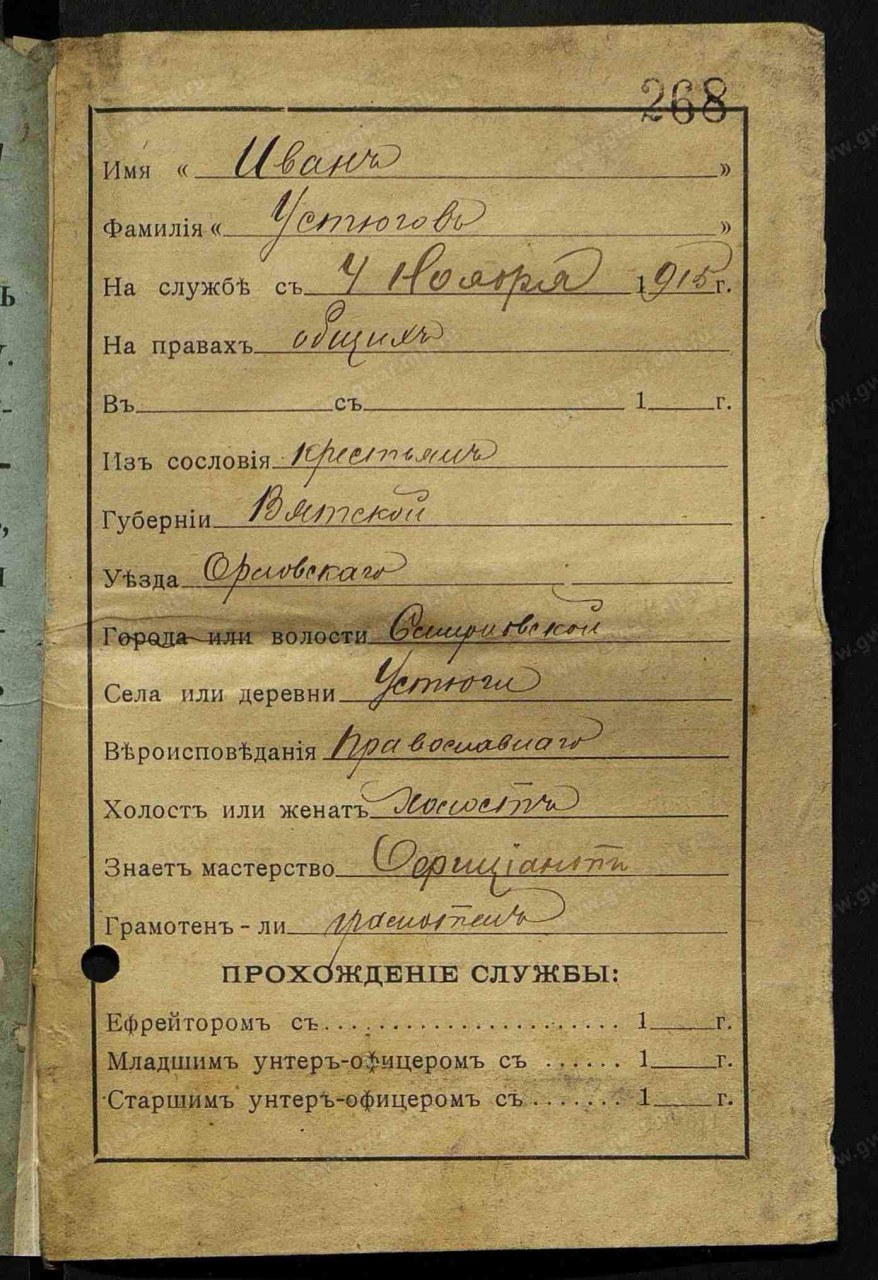 268
Имя « Иванъ »
Фамилія « Устюговъ »
На службѣ съ 4 Ноября 1915 г.
На правахъ общихъ
Въ съ 1 г.
Изъ сословія крестьянъ
Губерніи Вятской
Уѣзда Орловскаго
Города или волости
Села или деревни Устюги
Вѣроисповѣданія Православнаго
Холостъ или женатъ Холостъ
Знаетъ мастерство Официантъ
Грамотенъ-ли грамотенъ
ПРОХОЖДЕНІЕ СЛУЖБЫ:
Ефрейторомъ съ...................... 1 г.
Младшимъ унтеръ-офицеромъ съ ...... 1 г.
Старшимъ унтеръ-офицеромъ съ ....... 1 г.